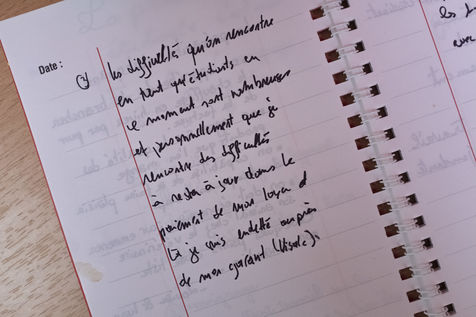 Date :
④ les difficulté qu'on rencontre
en tant qu'étudiants en
ce moment sont nombreuses
et personnellement que je
rencontre des difficultés
a rester à jour dans le
paiement de mon loyer et
là je suis endetté auprès
de mon garant (Visale).